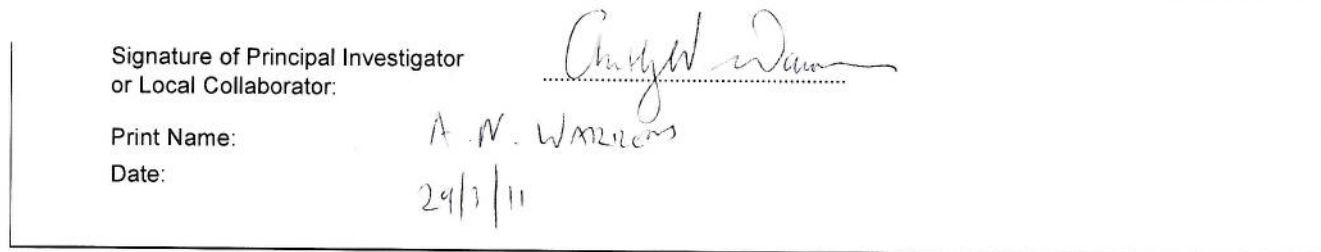 Signature of Principal Investigator
or Local Collaborator:
Print Name: A. N. WARRENS
Date: 29/3/11